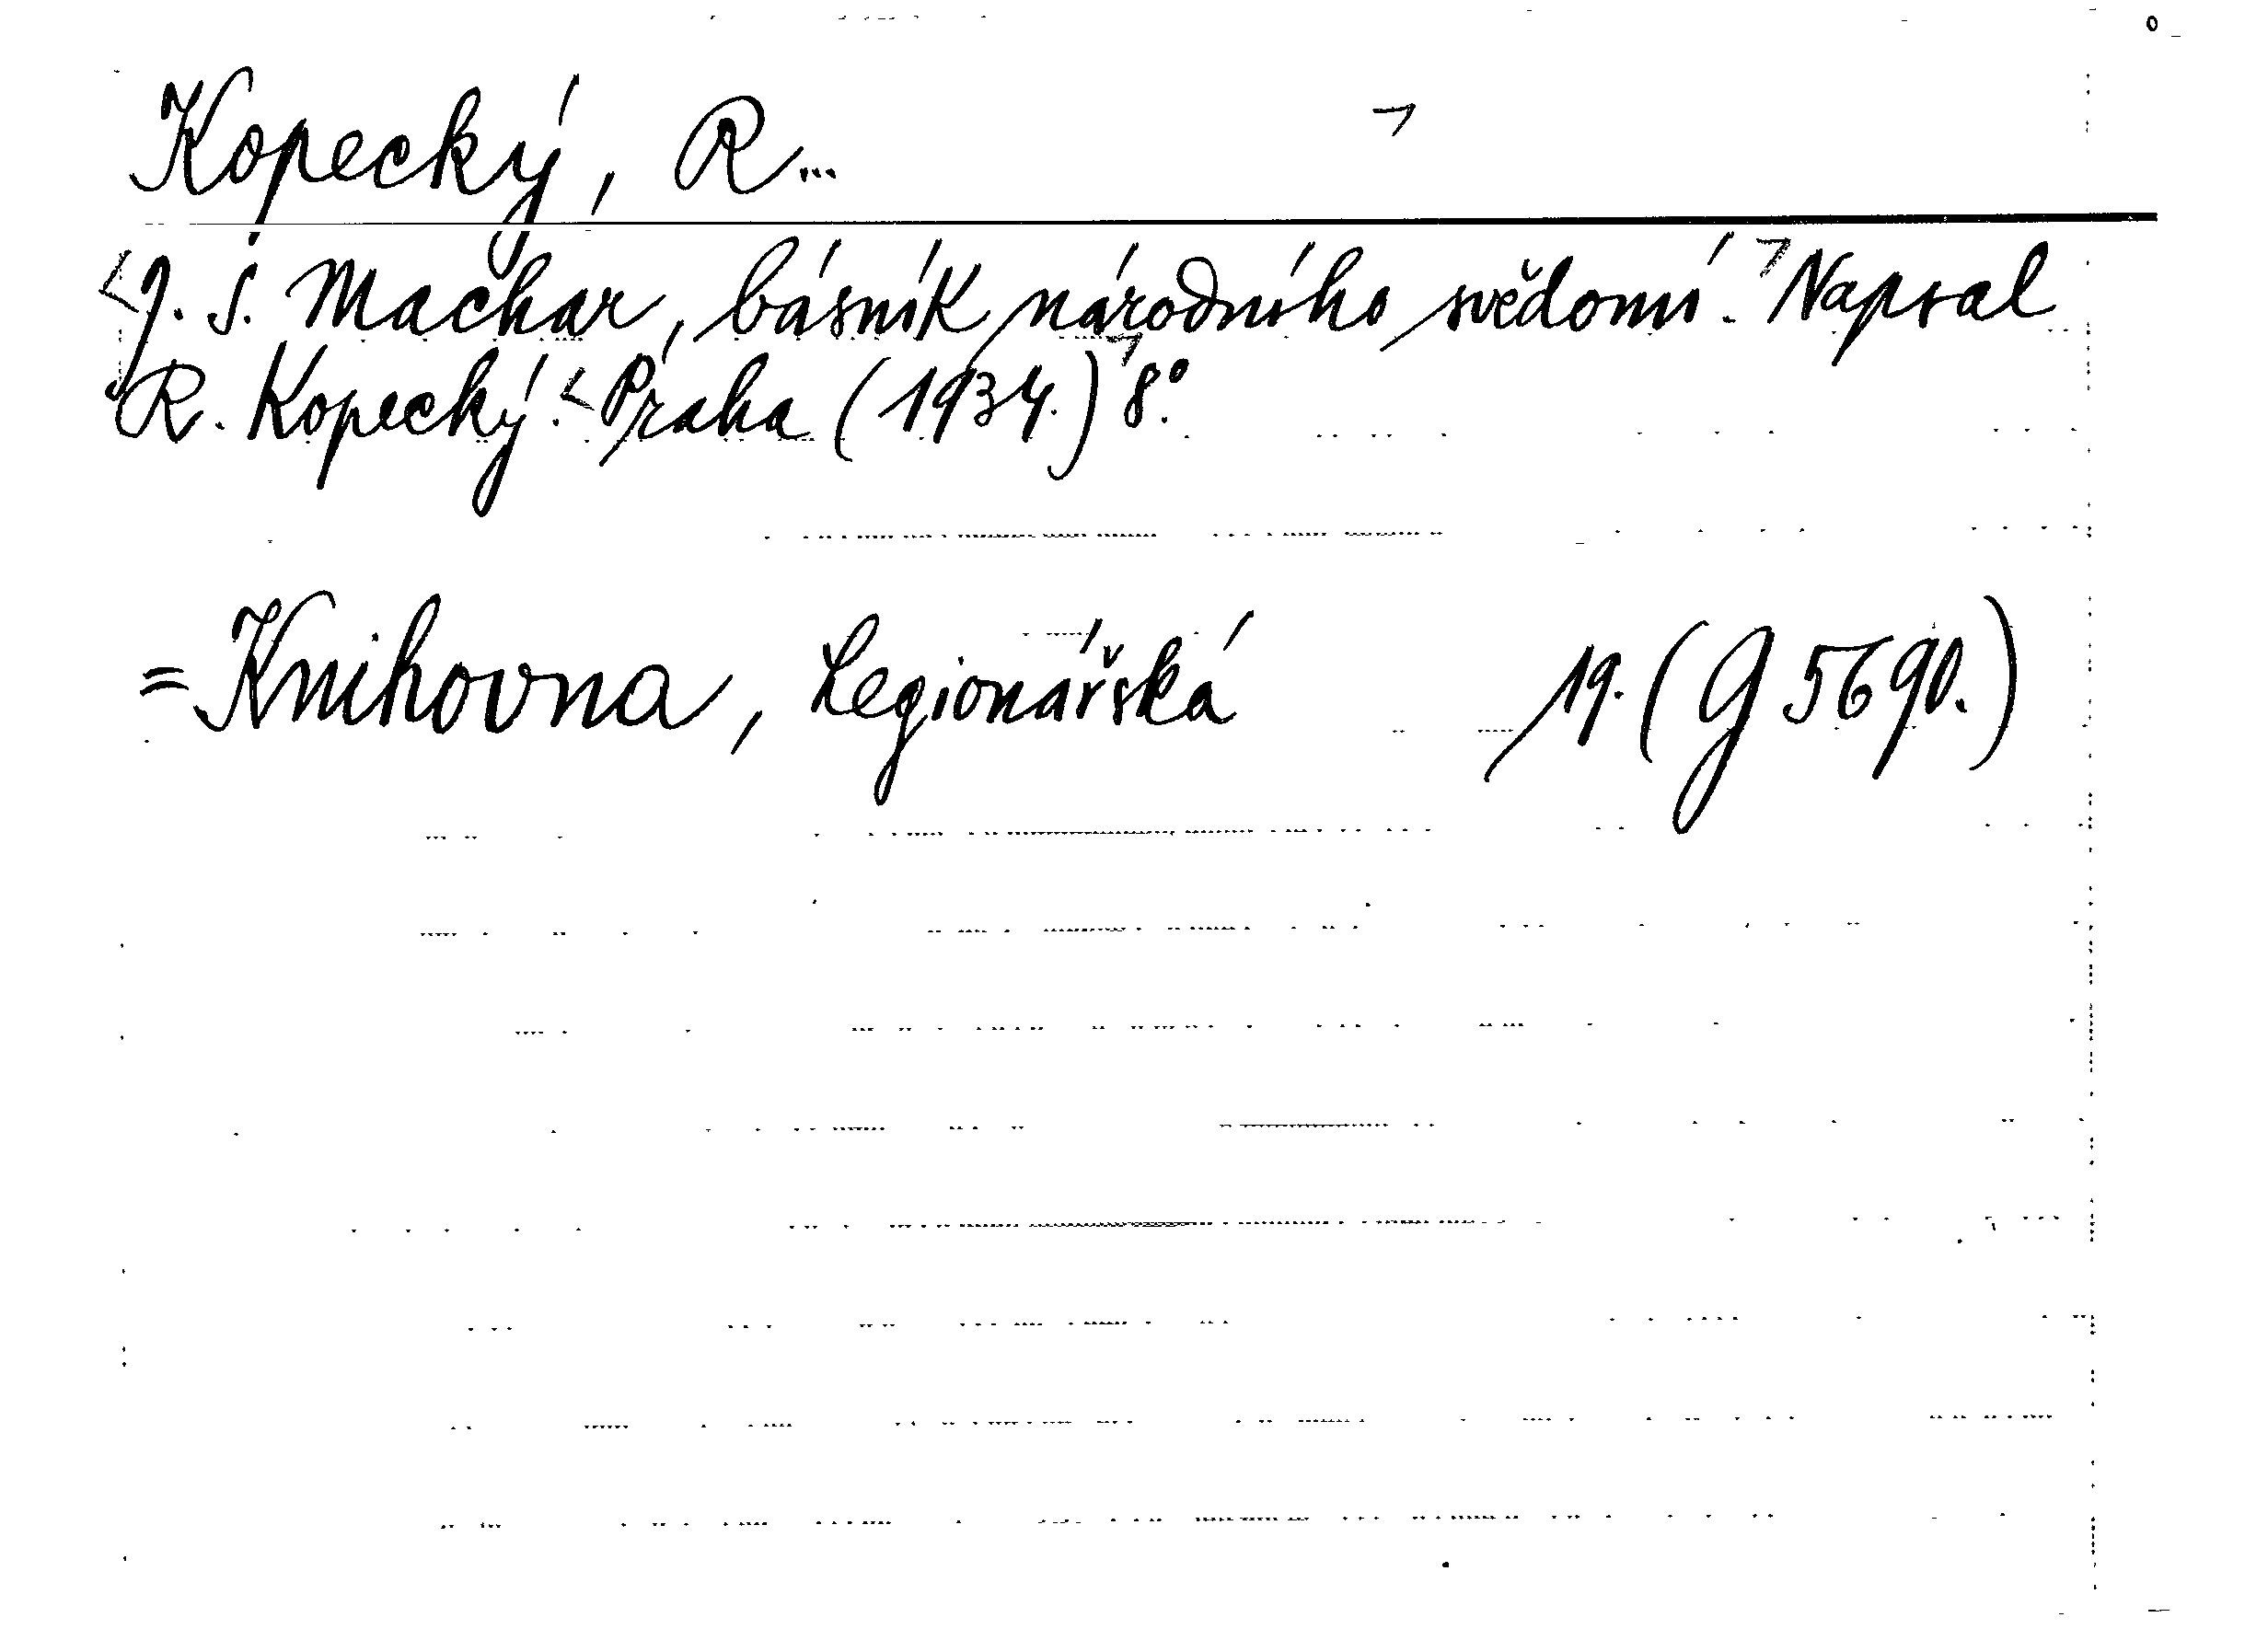 Kopecký, R...
J. S. Machar, básník národního svědomí. Napsal
R. Kopecký. Praha (1934.) 8°.
= Knihovna, Legionářská 19. (G 5690.)